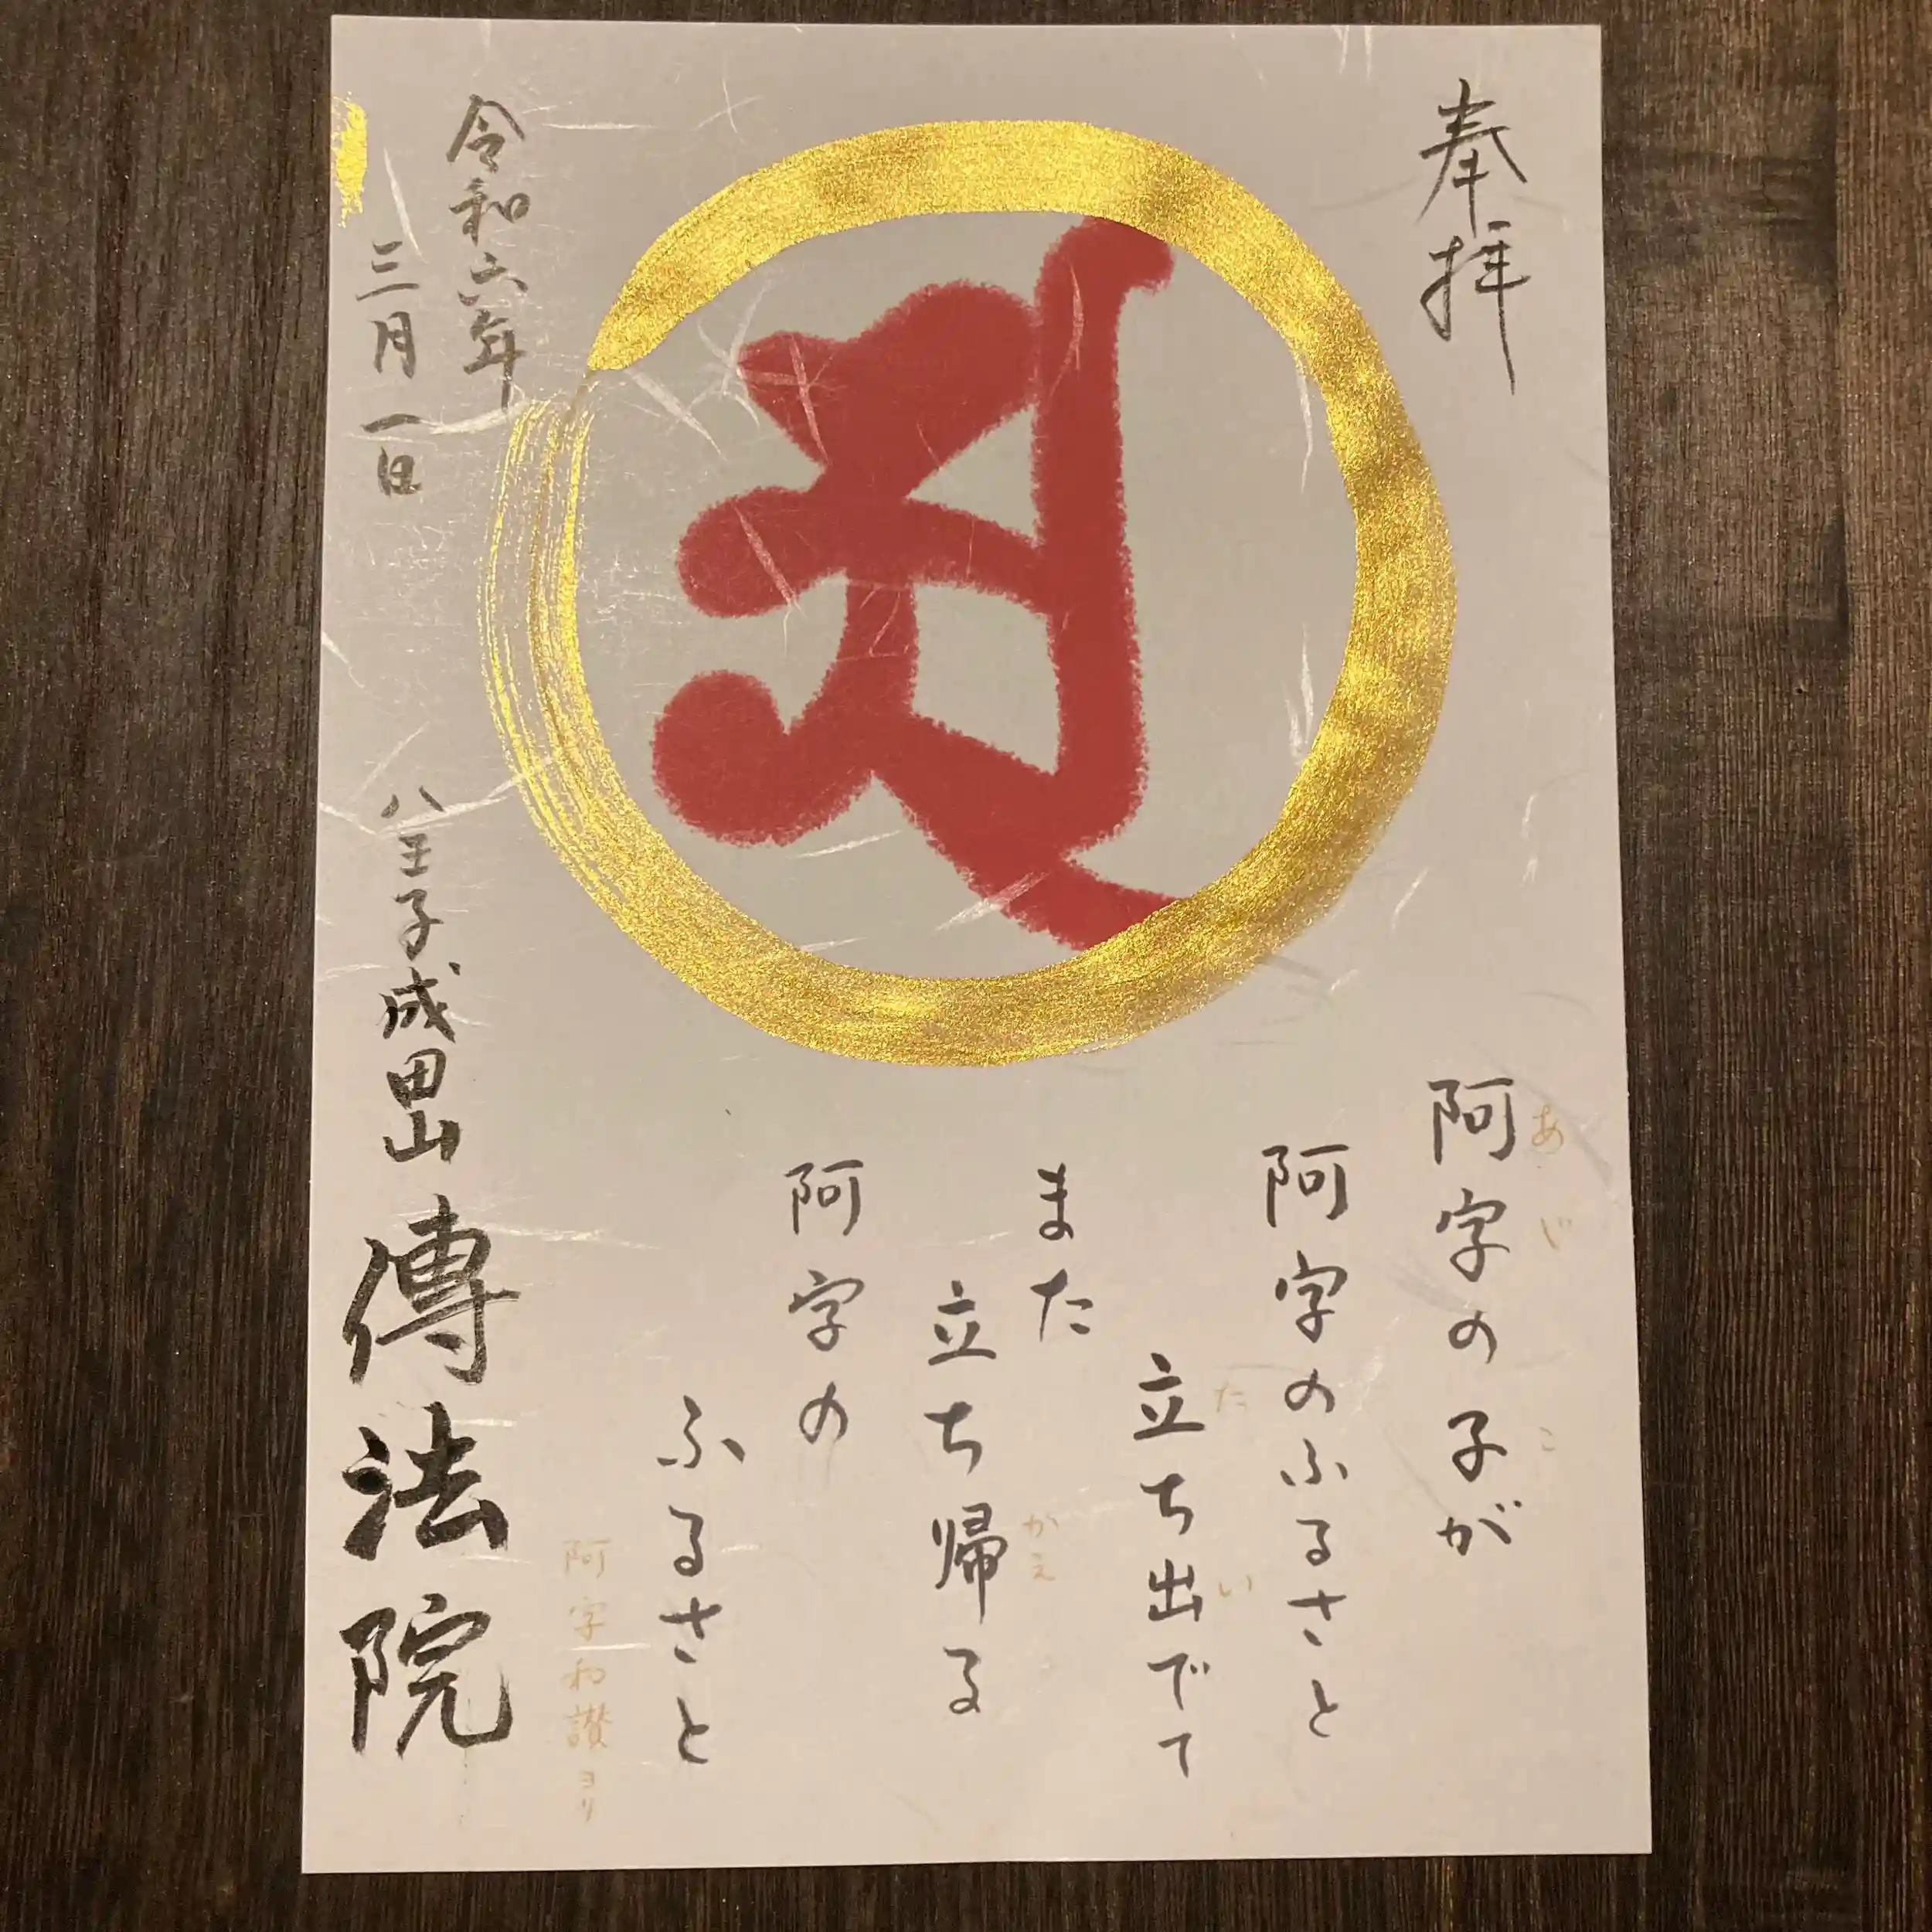 奉拝
阿字の子が
あじ こ
阿字のふるさと
立ち出でて
た い
また
立ち帰る
かえ
阿字の
ふるさと
阿字和讃ヨリ
令和六年
三月一日
八王子成田山 傳法院